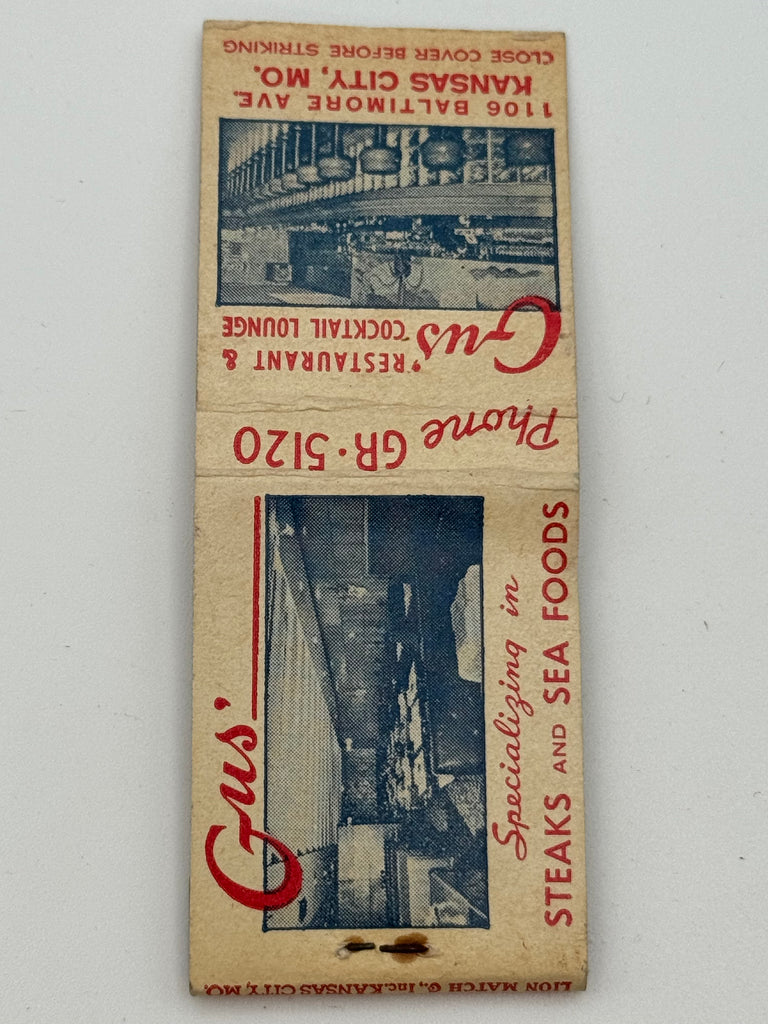 Gus'
RESTAURANT &
COCKTAIL LOUNGE
1106 BALTIMORE AVE.
KANSAS CITY, MO.
CLOSE COVER BEFORE STRIKING
Phone GR·5120
Gus'
Specializing in
STEAKS AND SEA FOODS
LION MATCH C., Inc. KANSAS CITY, MO.